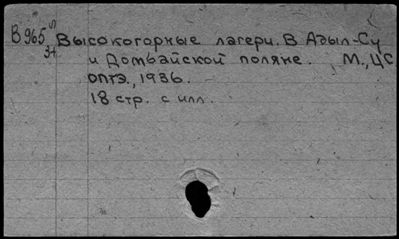 В965 Высокогорные лагери. В Адыл-Су
и Домбайской поляне. М., ЦС
ОПТЭ, 1936.
18 стр. с илл.